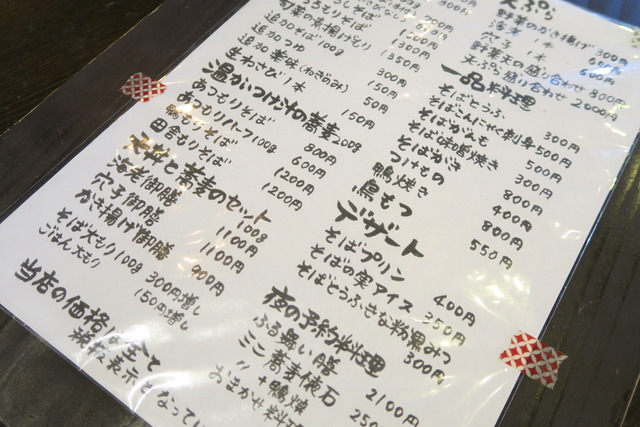 旬菜の素揚げもり 1350円
追加そば100g 300円
追加 つゆ 50円
追加 薬味(ねぎのみ) 50円
生わさび1本 150円
温かいつけ汁の蕎麦 200g
あつもりそば 800円
あつもりハーフ100g 600円
鴨汁そば 1200円
田舎もりそば 1200円
天丼と蕎麦のセット 100g
海老御膳 1100円
穴子御膳 1100円
かき揚げ御膳 900円
そば大もり100g 300円増し
ごはん大もり 150円増し
当店の価格は全て
税込表示となってい
天ぷら
野菜のかき揚げ 300円
海老 1本 600円
穴子 1本 600円
野菜天の盛り合わせ 800円
天ぷら盛り合わせ 2000円
一品料理
そばとうふ 300円
そばこんにゃく刺身 500円
そばがなも 500円
そば味噌焼き 300円
そばがき 800円
つけもの 400円
鴨焼き 800円
鳥もつ 550円
デザート
そばプリン 400円
そばの実アイス 350円
そばとうふきな粉黒みつ 300円
夜の予約料理
ふる舞い膳 2100円
ここ蕎麦懐石 250
〃+鴨焼
おまかせ料理